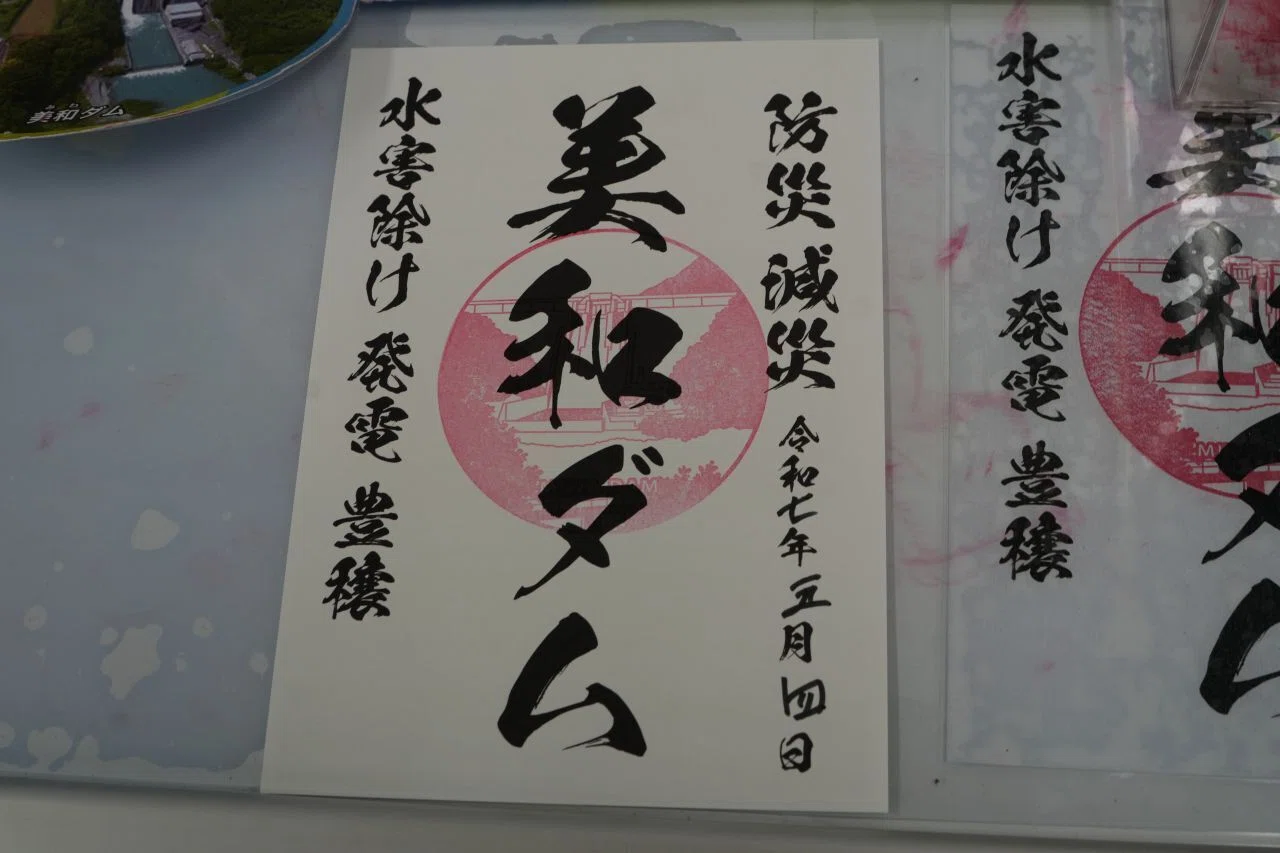 防災 減災 令和七年 五月 四日
美和ダム
水害除け 発電 豊穣
美和ダム
みわ
美和ダ
水害除け 発電 豊穣